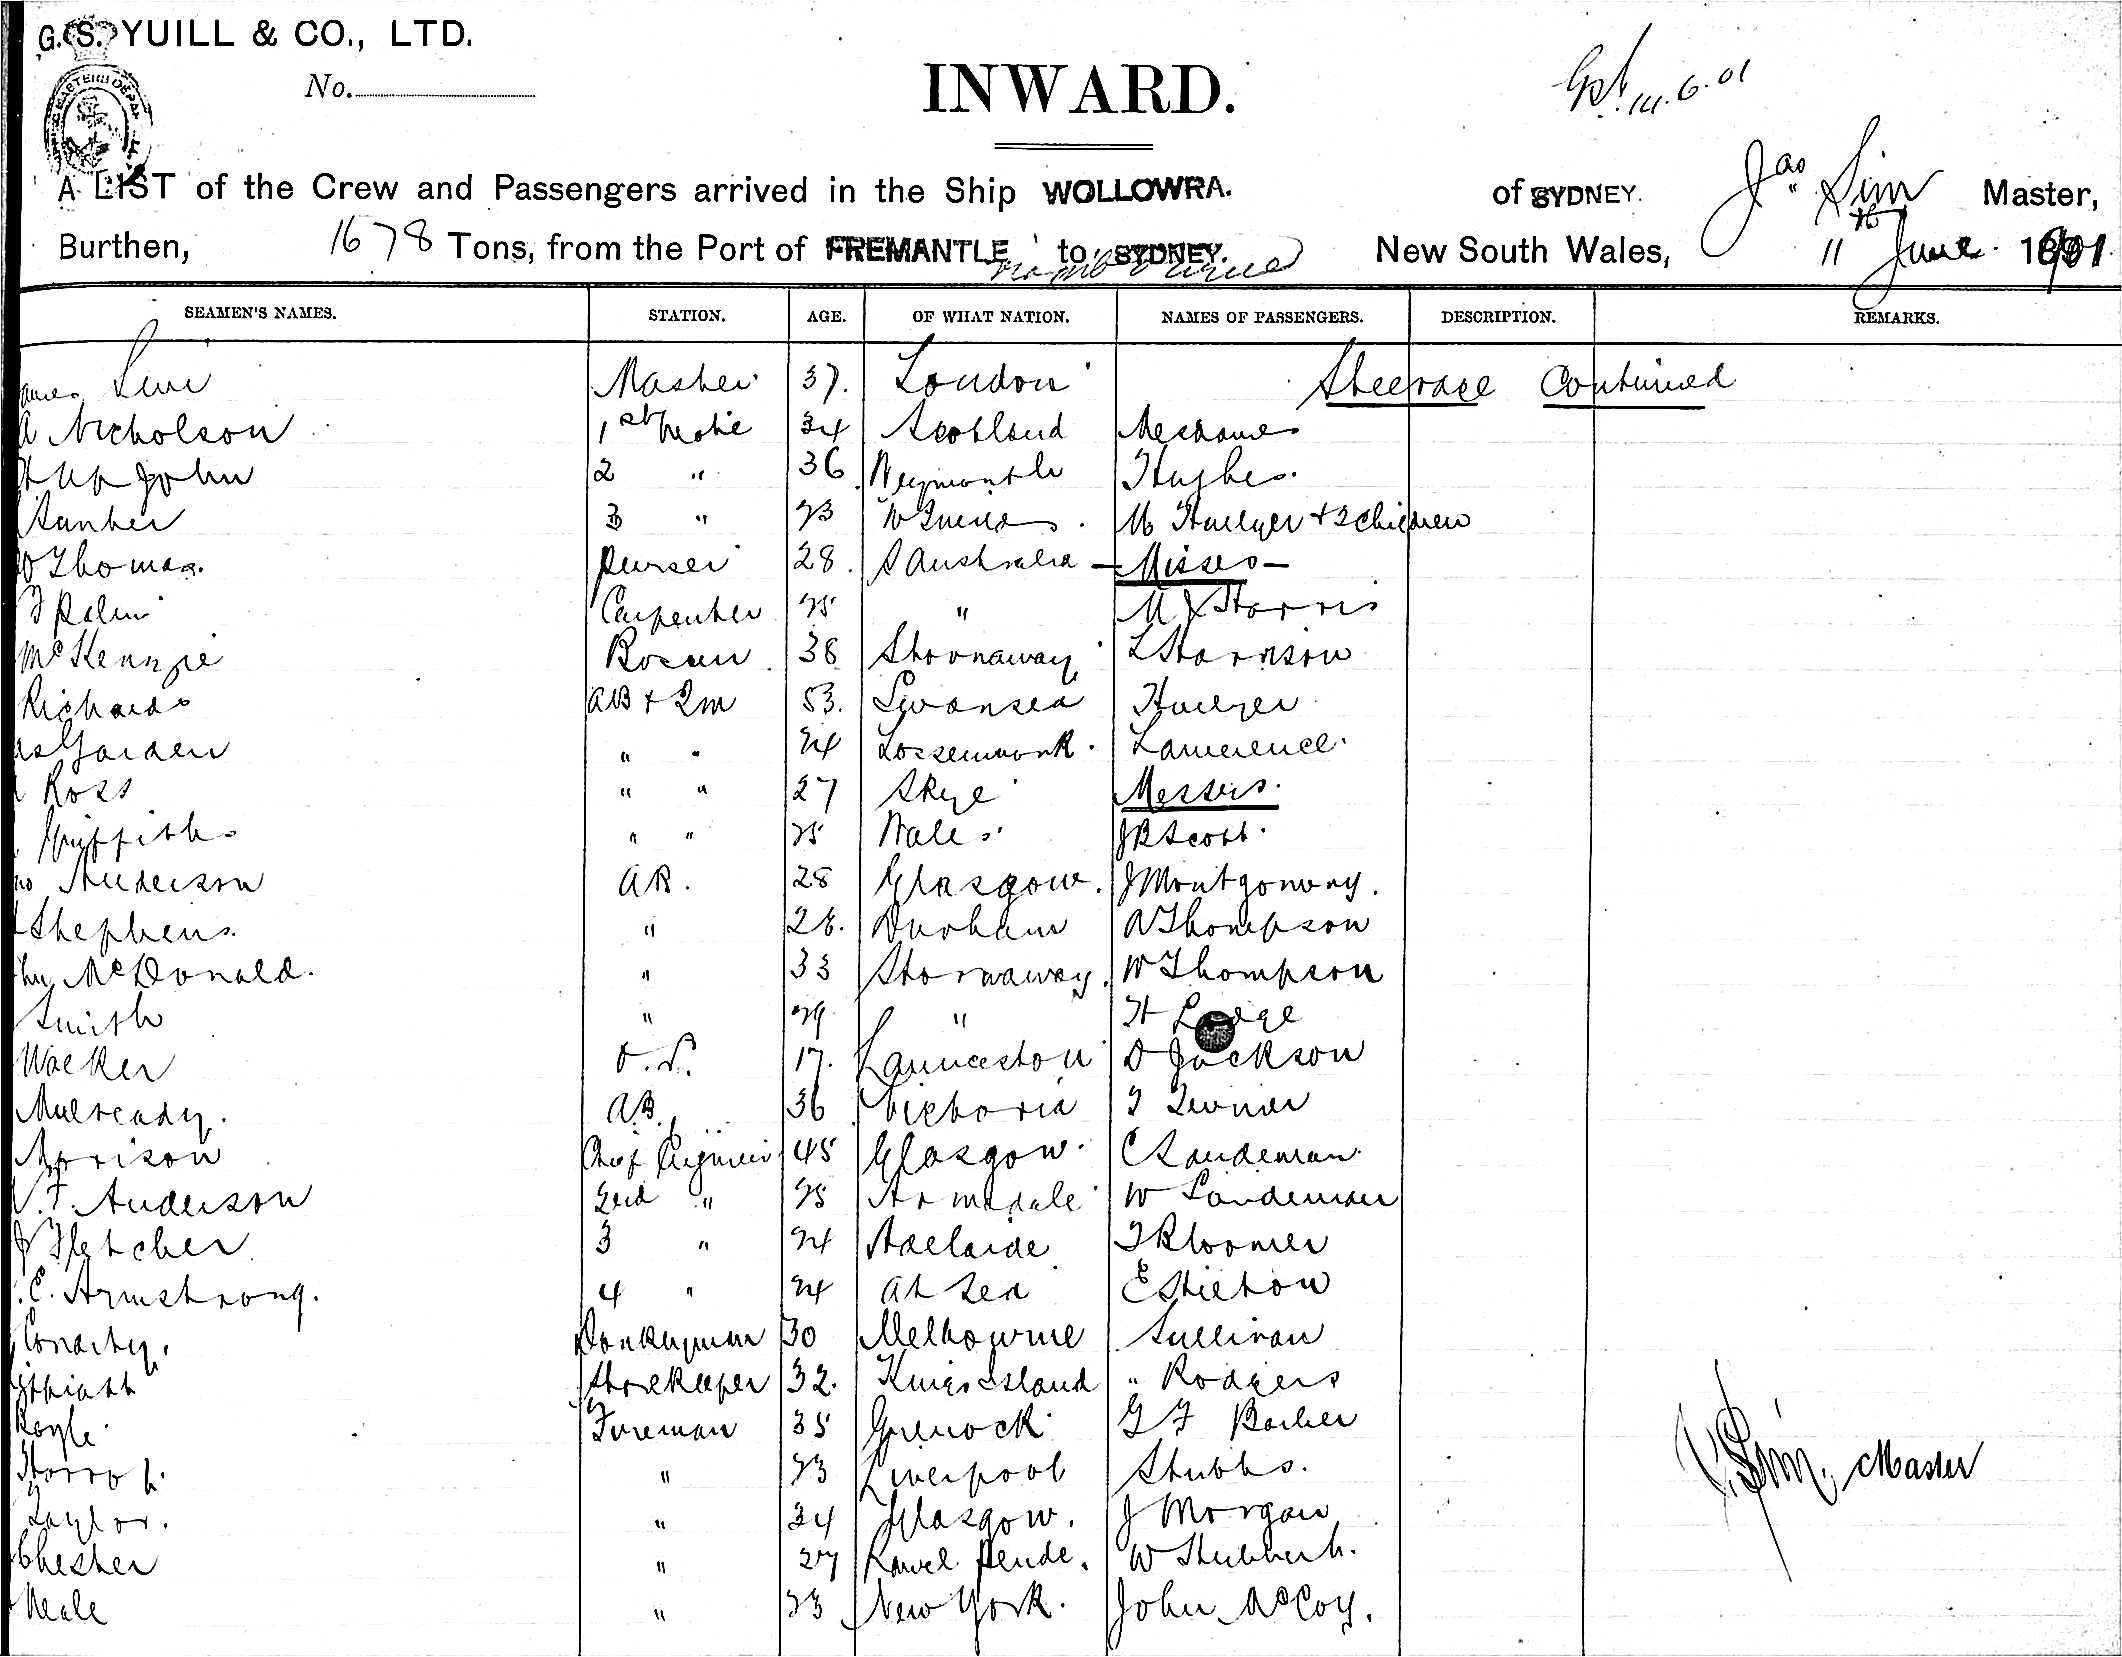 G. S. YUILL & CO., LTD.
No.
INWARD.
14.6.01
A LIST of the Crew and Passengers arrived in the Ship WOLLOWRA. of SYDNEY. Jas Sim Master,
Burthen, 1678 Tons, from the Port of FREMANTLE to SYDNEY. New South Wales, 11th June 1901
SEAMEN'S NAMES. STATION. AGE. OF WHAT NATION. NAMES OF PASSENGERS. DESCRIPTION. REMARKS.
Sim Master 37. London Steerage Continued
A Nicholson 1st Mate 34 Scotland Mesdames
Up John 2 " 36 Hughes.
3 " 23 M Huelger + 2 Children
W Thomas. purser 28. S Australia - Misses -
Carpenter 25 " M J Harris
McKenzie Bosun 38 Stornaway L Harrison
Richards AB + 2m 53. Swansea Huelger
Garden " " 24 Lossemouth. Lawerence.
Ross " " 27 Skye Messrs.
Griffiths " " 25 Wales J B Scott.
Anderson AB. 28 Glasgow. J Montgomery.
Stephens. " 28. Durham A Thompson
McDonald. " 33 Stornaway. W Thompson
Smith " 29 " H Lodge
Walker O.S. 17. Launceston D Jackson
Mulready. AB 36 Victoria T Turner
Morrison Chief Engineer 45 Glasgow. C Sandeman.
F. Anderson 2nd " 25 Armadale W Sandeman
J Fletcher 3 " 24 Adelaide T Bloomer
E. Armstrong. 4 " 24 at Sea E Skelton
Donkeyman 30 Melbourne Sullivan
Storekeeper 32. Kings Island " Rodgers
Boyle. Fireman 35 Greenock G F Barber
" 23 Liverpool Stubbs.
Taylor. " 34 Glasgow. J Morgan
J. Sim, Master
Chester " 27 W
Neale " 23 New York. John McCoy.